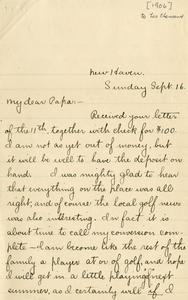 [1906]
New Haven.
Sunday Sept. 16.
My dear Papa:-
Received your letter
of the 11th, together with check for $100.
I am not as yet out of money, but
it will be well to have the deposit on
hand. I was mighty glad to hear
that everything on the place was all
right; and of course the local golf news
was also interesting. In fact it is
about time to call my conversion com-
plete - I am become like the rest of the
family a player at or of golf, and hope
I will get in a little playing next
summer, as I certainly will if I